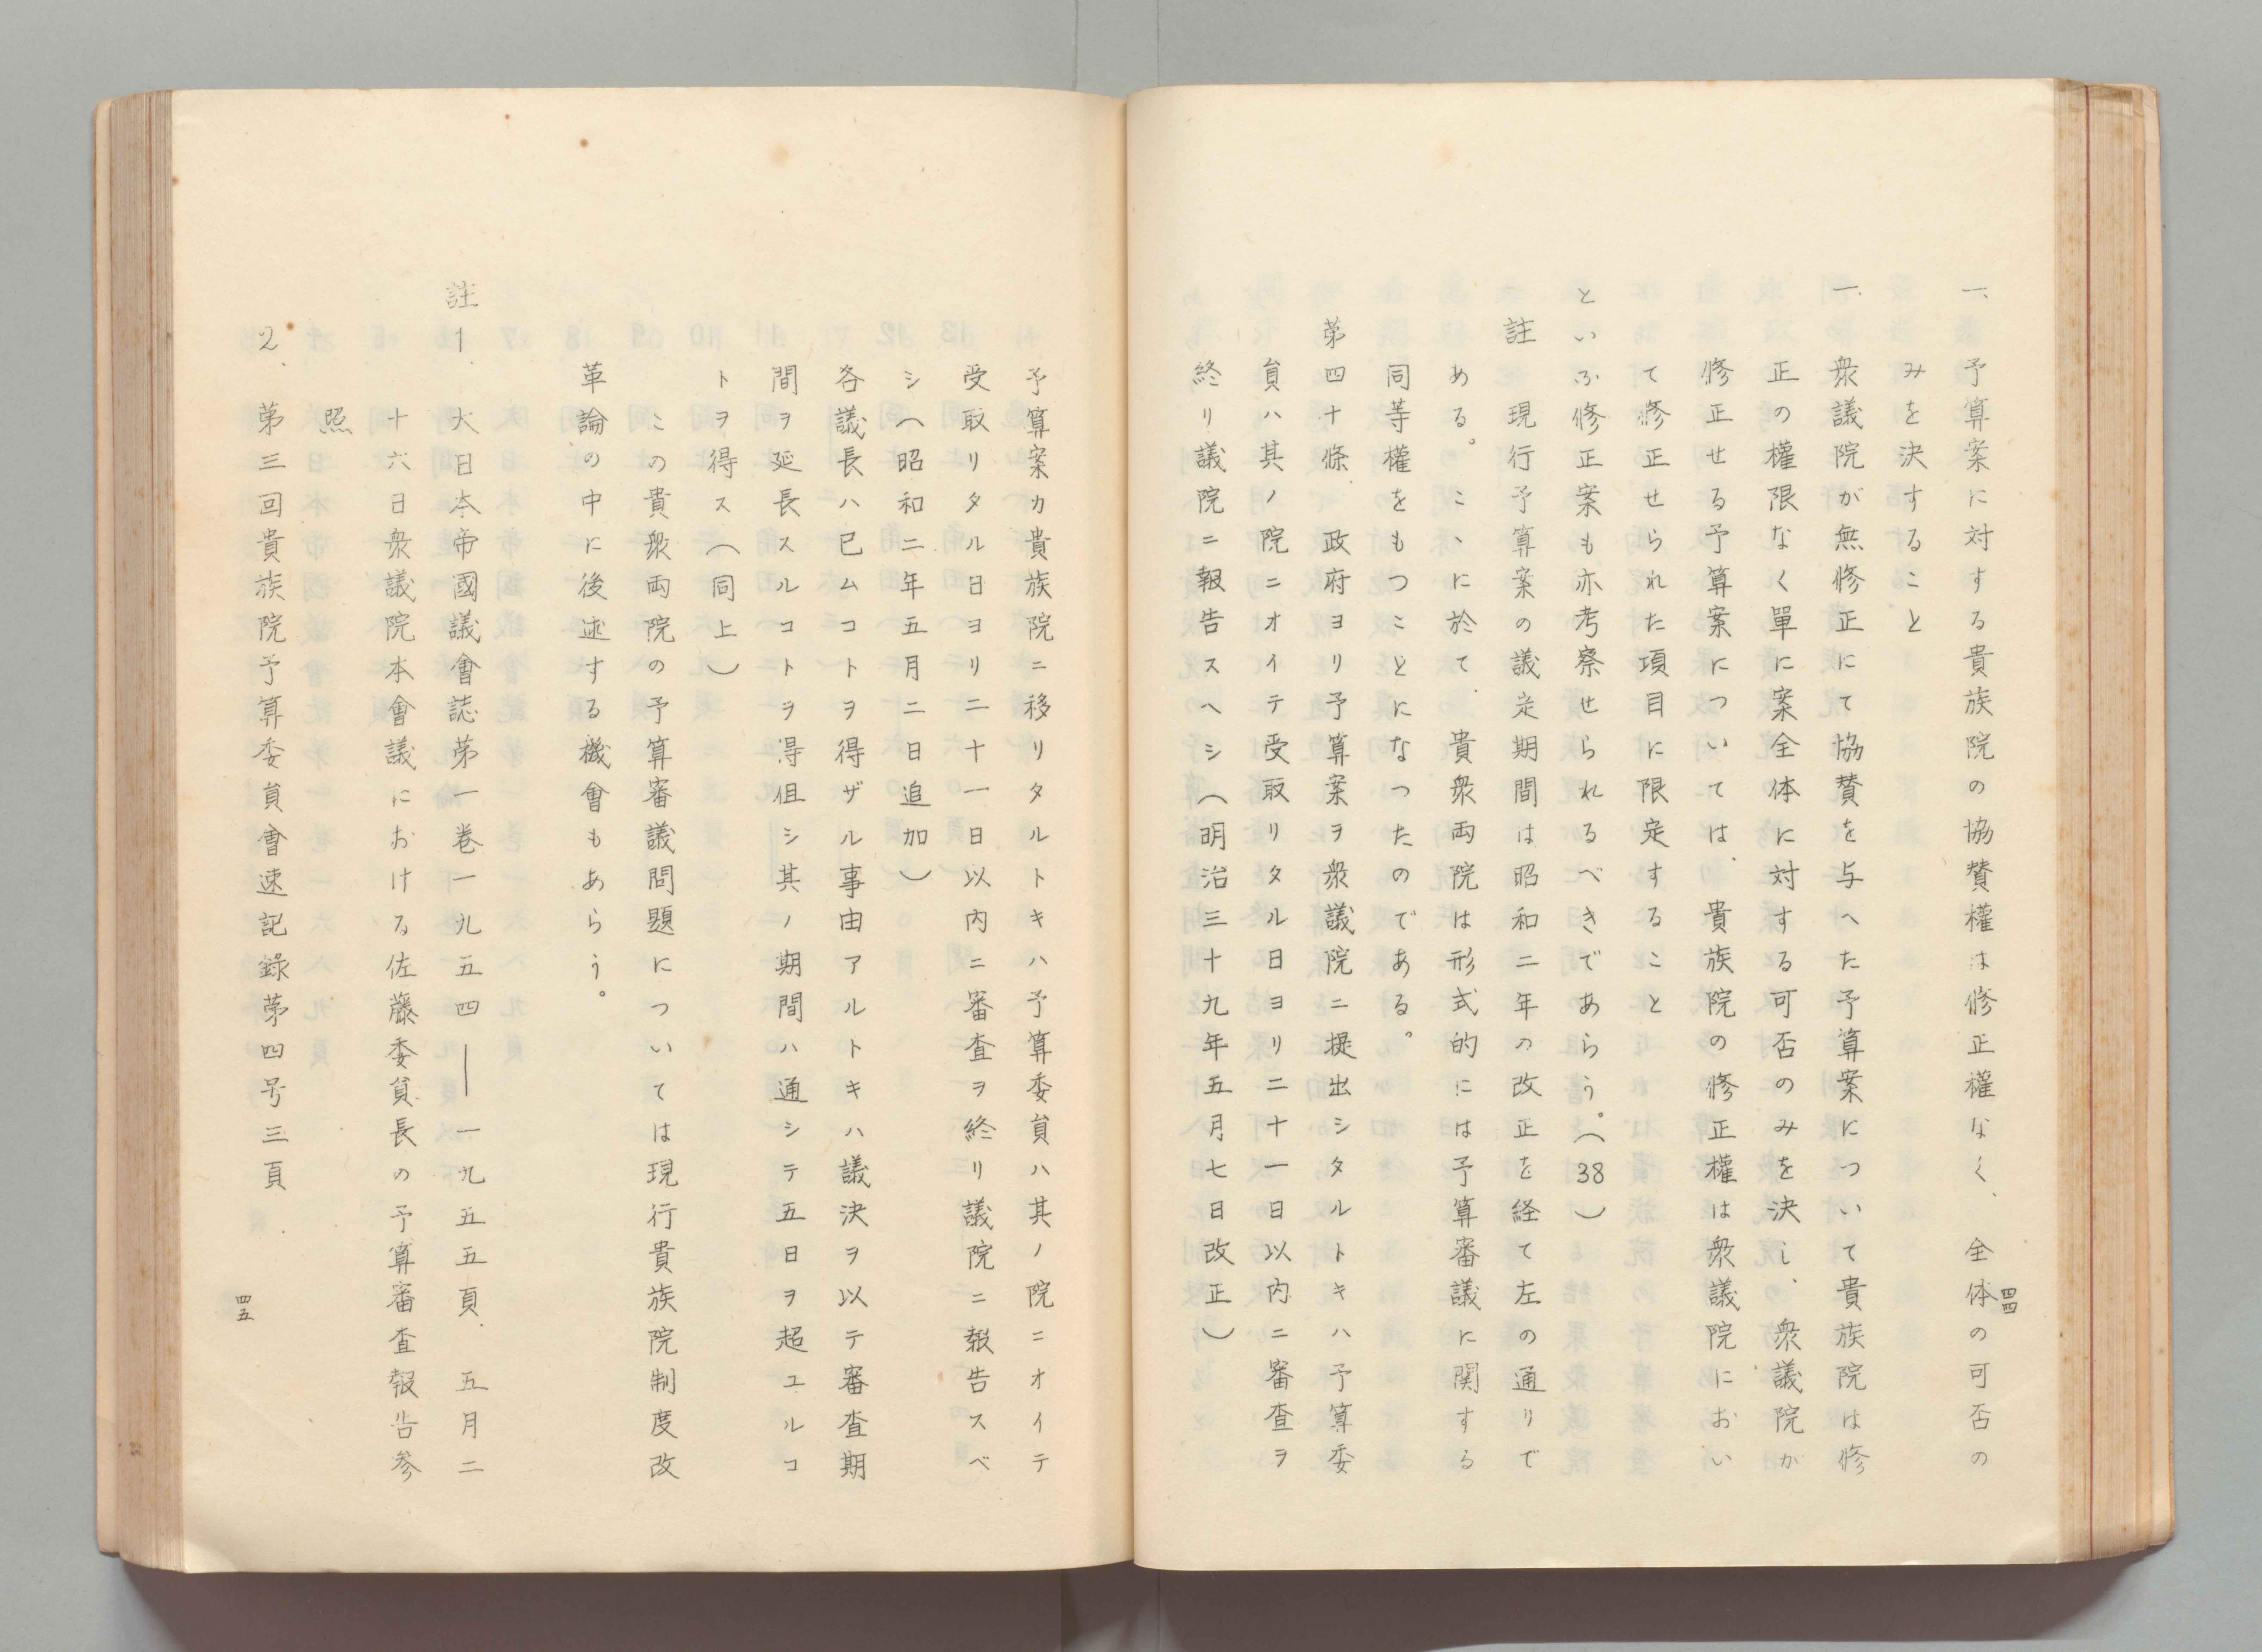 一、予算案に対する貴族院の協賛權は修正權なく、全体の可否の
みを決すること
一、衆議院が無修正にて協賛を与へた予算案について貴族院は修
正の權限なく單に案全体に対する可否のみを決し、衆議院が
修正せる予算案については、貴族院の修正權は衆議院におい
て修正せられた項目に限定すること
といふ修正案も亦考察せられるべきであらう。（38）
註 現行予算案の議定期間は昭和二年の改正を経て左の通りで
ある。こゝに於て、貴衆両院は形式的には予算審議に関する
同等權をもつことになつたのである。
第四十條、政府ヨリ予算案ヲ衆議院ニ提出シタルトキハ予算委
員ハ其ノ院ニオイテ受取リタル日ヨリ二十一日以内ニ審査ヲ
終リ議院ニ報告スヘシ（明治三十九年五月七日改正）
四四
予算案カ貴族院ニ移リタルトキハ予算委員ハ其ノ院ニオイテ
受取リタル日ヨリ二十一日以内ニ審査ヲ終リ議院ニ報告スベ
シ（昭和二年五月二日追加）
各議長ハ已ムコトヲ得ザル事由アルトキハ議決ヲ以テ審査期
間ヲ延長スルコトヲ得但シ其ノ期間ハ通シテ五日ヲ超ユルコ
トヲ得ス（同上）
この貴衆両院の予算審議問題については現行貴族院制度改
革論の中に後述する機會もあらう。
註1、大日本帝國議會誌第一巻一九五四―一九五五頁、五月二
十六日衆議院本會議における佐藤委員長の予算審査報告参
照
2、第三回貴族院予算委員會速記錄第四号三頁
四五